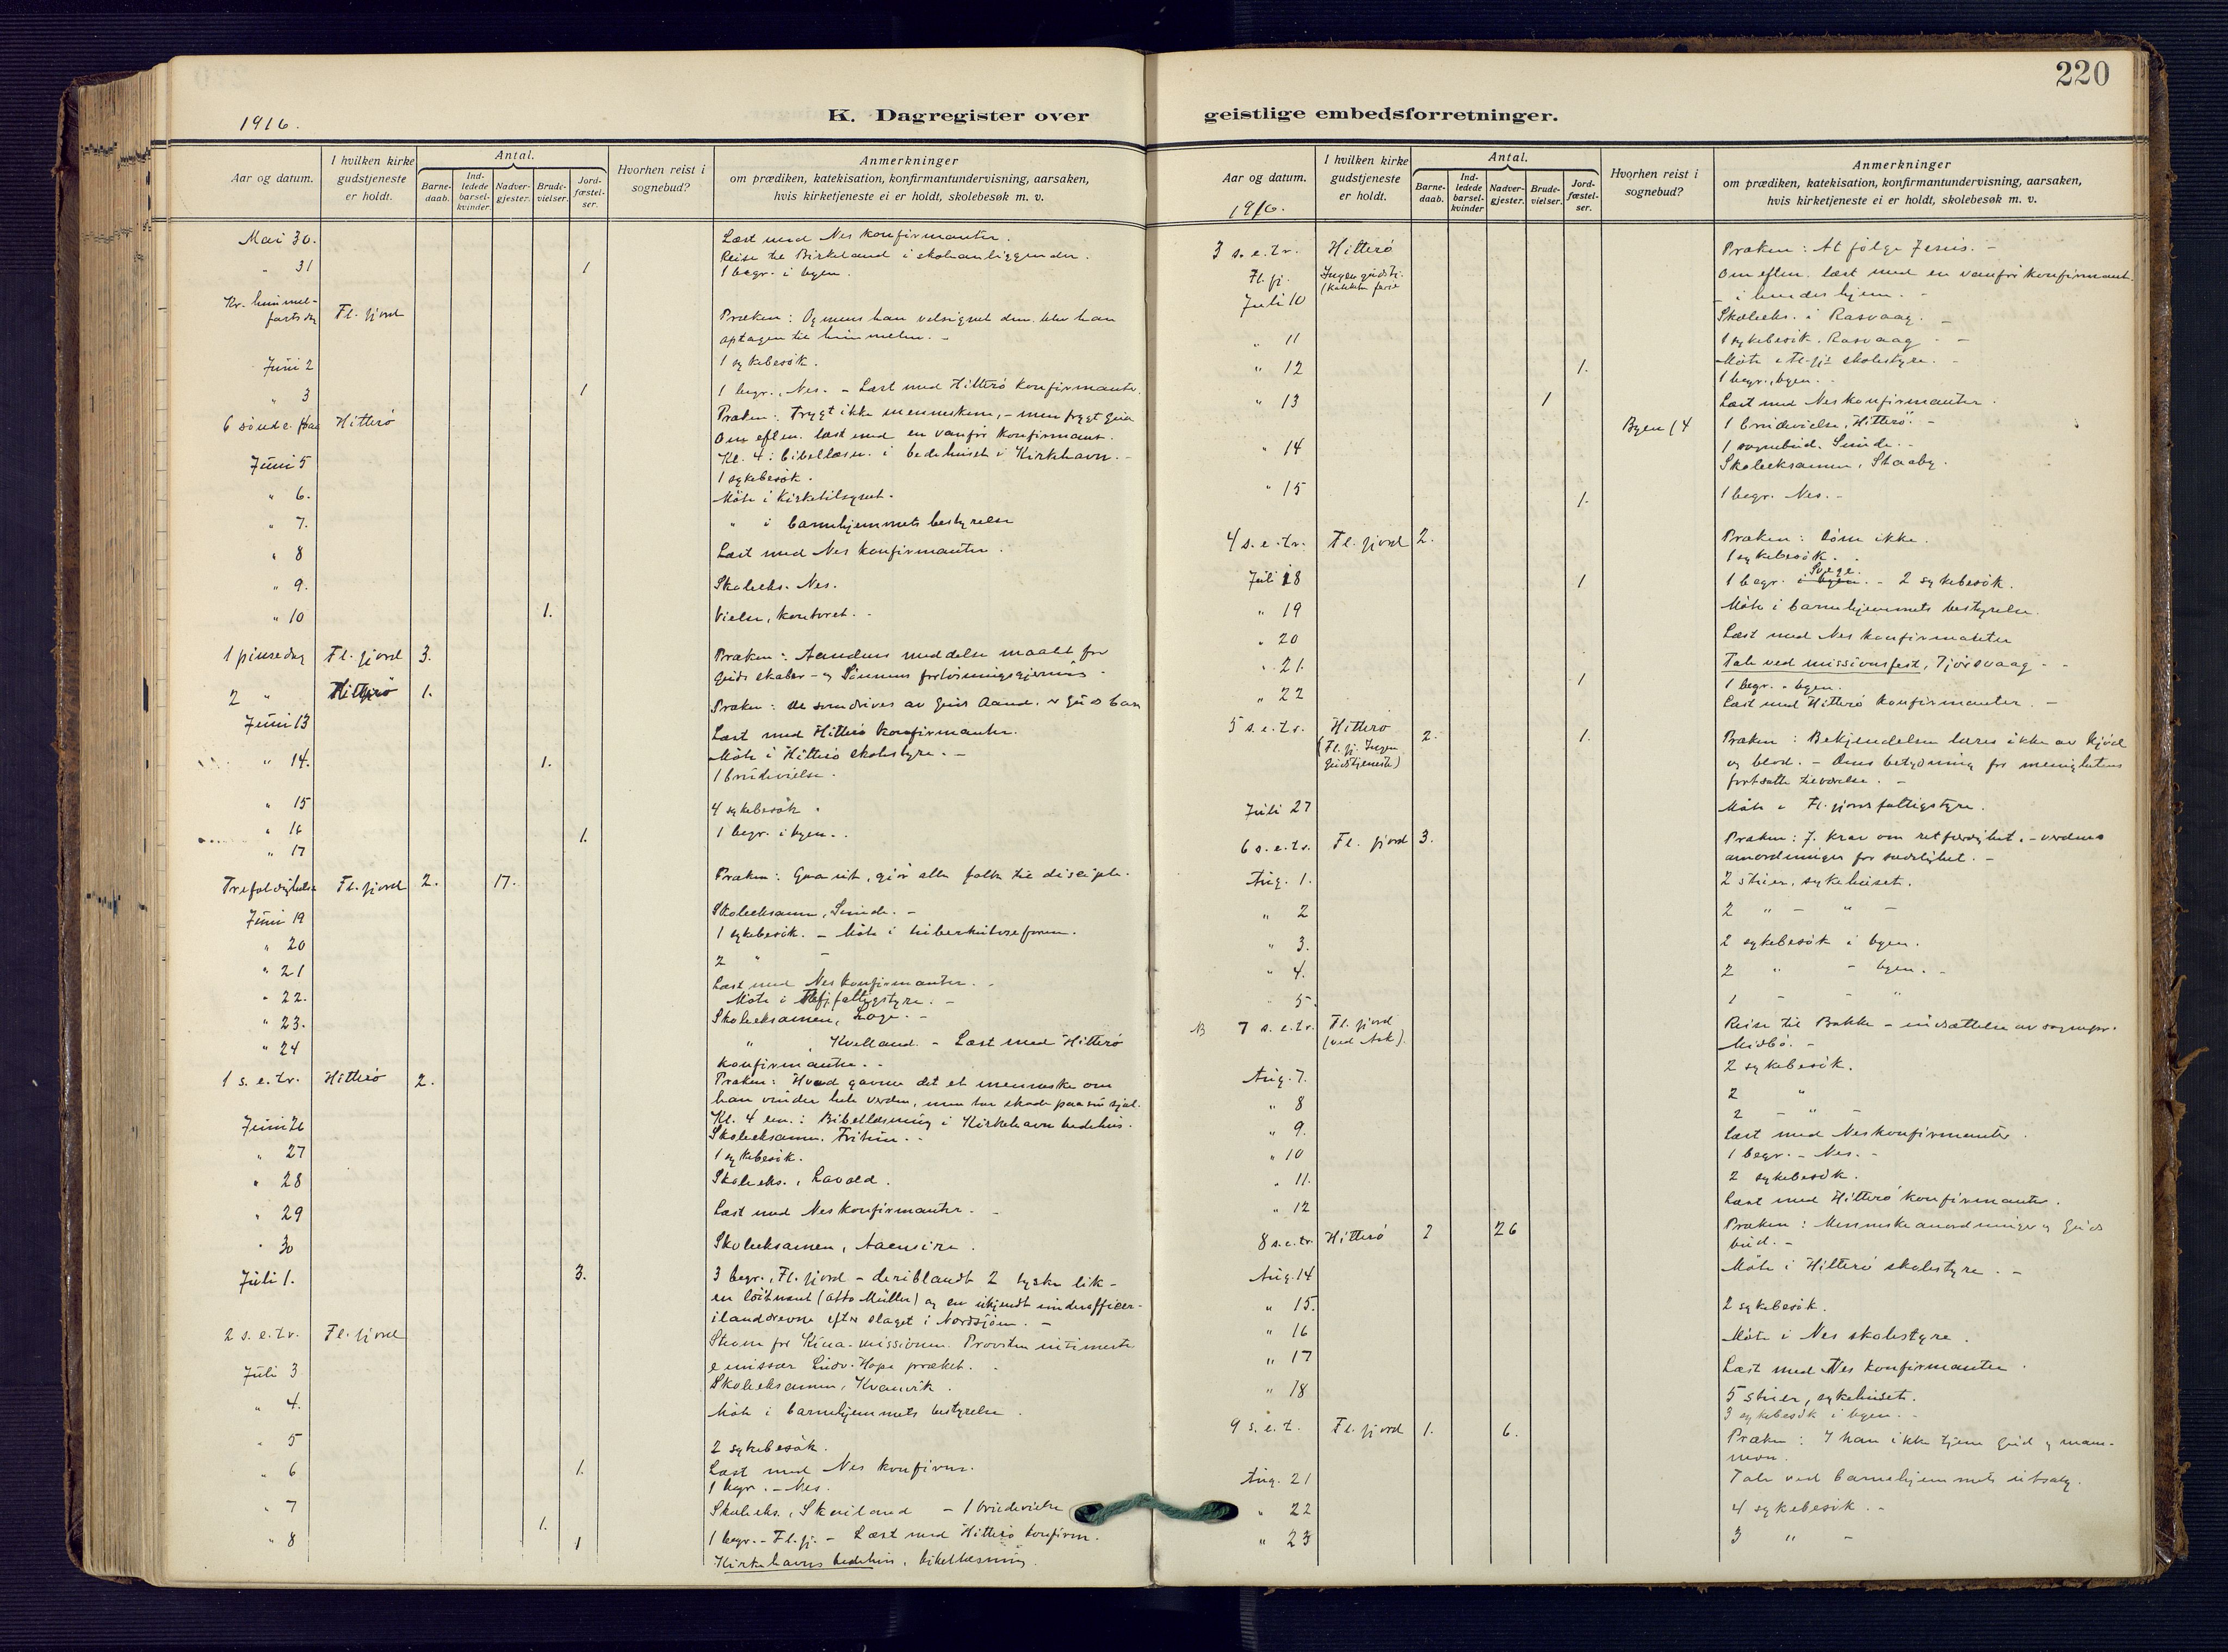 220
K. Dagregister over
geistlige embedsforretninger.
1916.
Aar og datum.
I hvilken kirke gudstjeneste er holdt.
Antal.
Barne-daab.
Ind-ledede barsel-kvinder
Nadver-gjester.
Brude-vielser.
Jord-fæstel-ser.
Hvorhen reist i sognebud?
Anmerkninger
om prædiken, katekisation, konfirmantundervisning, aarsaken,
hvis kirketjeneste ei er holdt, skolebesøk m. v.
Mai 30. Læst med Nes konfirmanter.
Reise til Birkeland i skoleanliggender.
" 31 1 1 begr. i byen.
Kr. himmel-
fartsdag Fl. fjord Præken: Og mens han velsignet dem blev han
optagen til himmelen. -
Juni 2 1 sykebesök.
" 3 1 1 begr., Nes. - Læst med Hitterö konfirmanter.
6 sönd e. Hitterö Præken: Frygt ikke menneskene, - men frygt Gud
Om eftm. læst med en vanför konfirmant.
Kl. 4: bibellæsn. i bedehuset i Kirkhavn. -
Juni 5 1 sykebesök.
" 6. Möte i Kirketilsynet.
" 7. " i barnehjemmets bestyrelse
" 8 Læst med Nes konfirmanter.
" 9. Skoleeks. Nes.
" 10 1. Vielse, kontoret. -
1 pinsedag Fl. fjord 3. Præken: Aandens meddelse maalet for
Guds skaber- og Sönnens forlösningsgjerning -
2 " Hitterö 1. Præken: de som drives av Guds Aand, er Guds barn
Juni 13 Læst med Hitterö konfirmanter.
Möte i Hitterö skolestyre. -
" 14. 1. 1 brudevielse.
" 15 4 sykebesök.
" 16 1. 1 begr. i byen. -
" 17
Trefoldighets Fl. fjord 2. 17. Præken: Gaa ut, gjör alle folk til disciple.
Juni 19 Skoleeksamen, Sunde. -
" 20 1 sykebesök. - Möte i tuberkuloseforen.
" 21 2 " -
" 22. Læst med Nes konfirmanter. -
Möte i Fl.fj. fattigstyre. -
" 23. Skoleeksamen, Loge. -
" 24 " Kvelland. - Læst med Hitterö
konfirmanter. -
1 s. e. tr. Hitterö 2. Præken: Hvad gavner det et menneske om
han vinder hele verden, men tar skade paa sin sjæl.
Kl. 4 em.: Bibellæsning i Kirkehavn bedehus.
Juni 26 Skoleeksamen. -
" 27 1 sykebesök.
" 28 Skoleeks., Lavold.
" 29 Læst med Nes konfirmanter. -
" 30 Skoleeksamen, Aaensire.
Juli 1. 3. 3 begr., Fl. fjord - deriblandt 2 tyske lik -
en löitnant (Otto Müller) og en ukjendt underofficer -
ilanddrevne efter slaget i Nordsjöen. -
2 s. e. tr. Fl. fjord Stevne for Kina-missionen. Provsten intimerte
emissær Ludv. Hope præket. -
Juli 3 Skoleeksamen, Kvanvik.
" 4. Möte i barnehjemmets bestyrelse.
" 5 2 sykebesök.
" 6 1. Læst med Nes konfirm.
1 begr. - Nes.
" 7 1. Skoleeks., - 1 brudevielse
" 8 1 1 begr. - Fl. fj. - Læst med Hitterö konfirm.
Kirkehavns bedehus, bibellæsning.
Aar og datum.
1916.
I hvilken kirke gudstjeneste er holdt.
Antal.
Barne-daab.
Ind-ledede barsel-kvinder
Nadver-gjester.
Brude-vielser.
Jord-fæstel-ser.
Hvorhen reist i sognebud?
Anmerkninger
om prædiken, katekisation, konfirmantundervisning, aarsaken,
hvis kirketjeneste ei er holdt, skolebesøk m. v.
3 s. e. tr. Hitterö Præken: At fölge Jesus. -
Fl. fj. Ingen gudstj. Om eftm. læst med en vanför konfirmant
- i hendes hjem. -
Juli 10 Skoleeks. i Rasvaag. -
" 11 1 sykebesök. Rasvaag - -
" 12 1. Möte i Fl.fj. skolestyre. -
1 begr., byen. -
" 13 1 Læst med Nes konfirmanter.
Byen 14 1 brudevielse, Hitterö. -
" 14 1 sognebud. Sunde. -
Skoleeksamen, Staaby.
" 15 1. 1 begr. Nes. -
4 s. e. tr. Fl. fjord 2. Præken: Döm ikke.
1 sykebesök.
Juli 18 1 1 begr. i byen. Svege. - 2 sykebesök.
" 19 Möte i barnehjemmets bestyrelse.
" 20 Læst med Nes konfirmanter
" 21. Tale ved missionsfest, Tjörsvaag. -
" 22 1 1 begr. - byen.
Læst med Hitterö konfirmanter. -
5 s. e. tr. Hitterö 2. 1. Præken: Bekjendelsen læres ikke av kjöd
(Fl. fj. Ingen og blod. - Dens betydning for menighetens
gudstjeneste) fortsatte tilværelse. -
Juli 27 Möte i Fl. fjords fattigstyre.
6 s. e. tr. Fl. fjord 3. Præken: J. krav om retfærdighet, - verdens
anordninger for sædelighet. -
Aug. 1. 2 stuer, sykehuset.
" 2 2 " - " -
" 3. 2 sykebesök i byen.
" 4. 2 " - byen. -
" 5. 1 - - "
NB 7 s. e. tr. Fl. fjord Reise til Bakke - indsættelse av sognepr.
(ved Ask). Midbö. -
Aug. 7. 2 sykebesök.
" 8 2 "
" 9. 2 - " -
Læst med Nes konfirmanter.
" 10 1 begr. - Nes. -
" 11. 2 sykebesök.
" 12 Læst med Hitterö konfirmanter.
8 s. e. tr. Hitterö 2 26 Præken: Menneskeanordninger og Guds
bud. -
Aug. 14 Möte i Hitterö skolestyre. -
" 15. 2 sykebesök.
" 16 Möte i Nes skolestyre.
" 17 Læst med Nes konfirmanter.
" 18 5 stuer, sykehuset.
3 sykebesök i byen. -
9 s. e. t. Fl. fjord 1. 6. Præken: I kan ikke tjene Gud og mam-
mon.
Aug. 21 Tale ved barnehjemmets utsalg.
" 22 4 sykebesök. -
" 23 3 " -